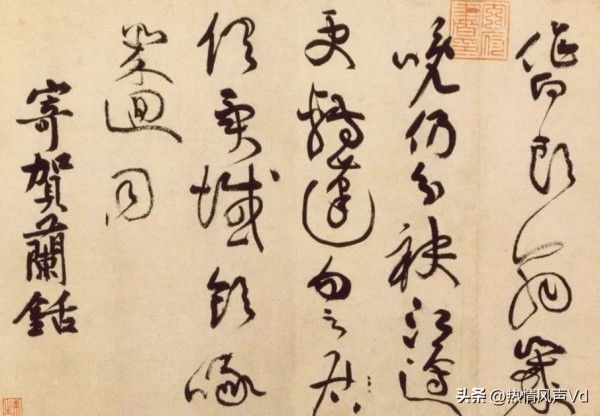 作白頭翁歲
晚仍分袂江邊
更轉蓬勿云
俱異域飲啄
幾迴同
寄賀蘭銛
头条 @热情风声Vd